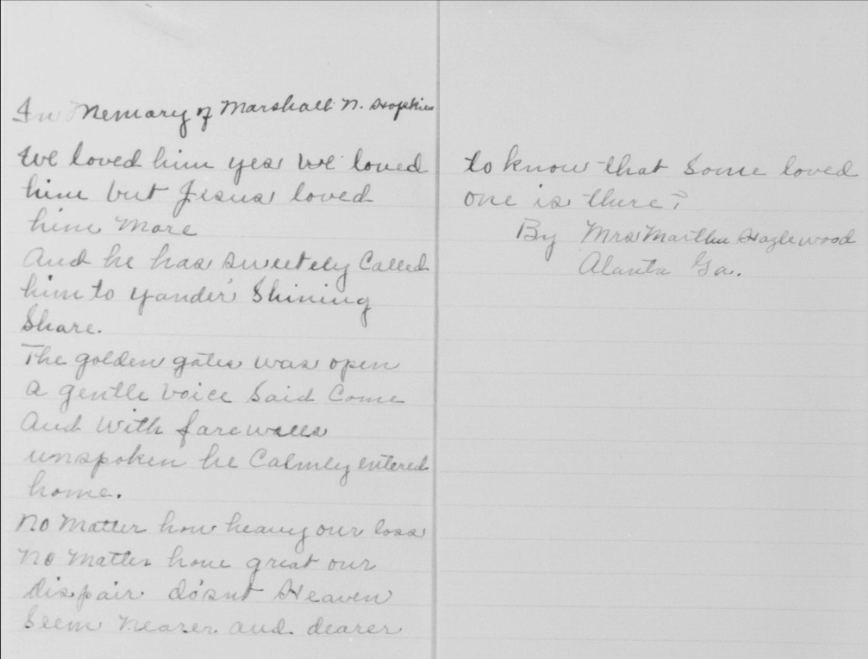 In Memory of Marshall N. Hopkins
We loved him yes we loved
him but Jesus loved
him more
And he has sweetely Called
him to yander's Shining
Share.
The golden gates was open
a gentle voice Said Come
And with farewells
unspoken he Calmley entered
home.
No Matter how heavy our loss
No matter how great our
dispair do'snt Heaven
Seem nearer and dearer
to know that Some loved
one is there?
By Mrs Martha Hazlewood
Alanta Ga.